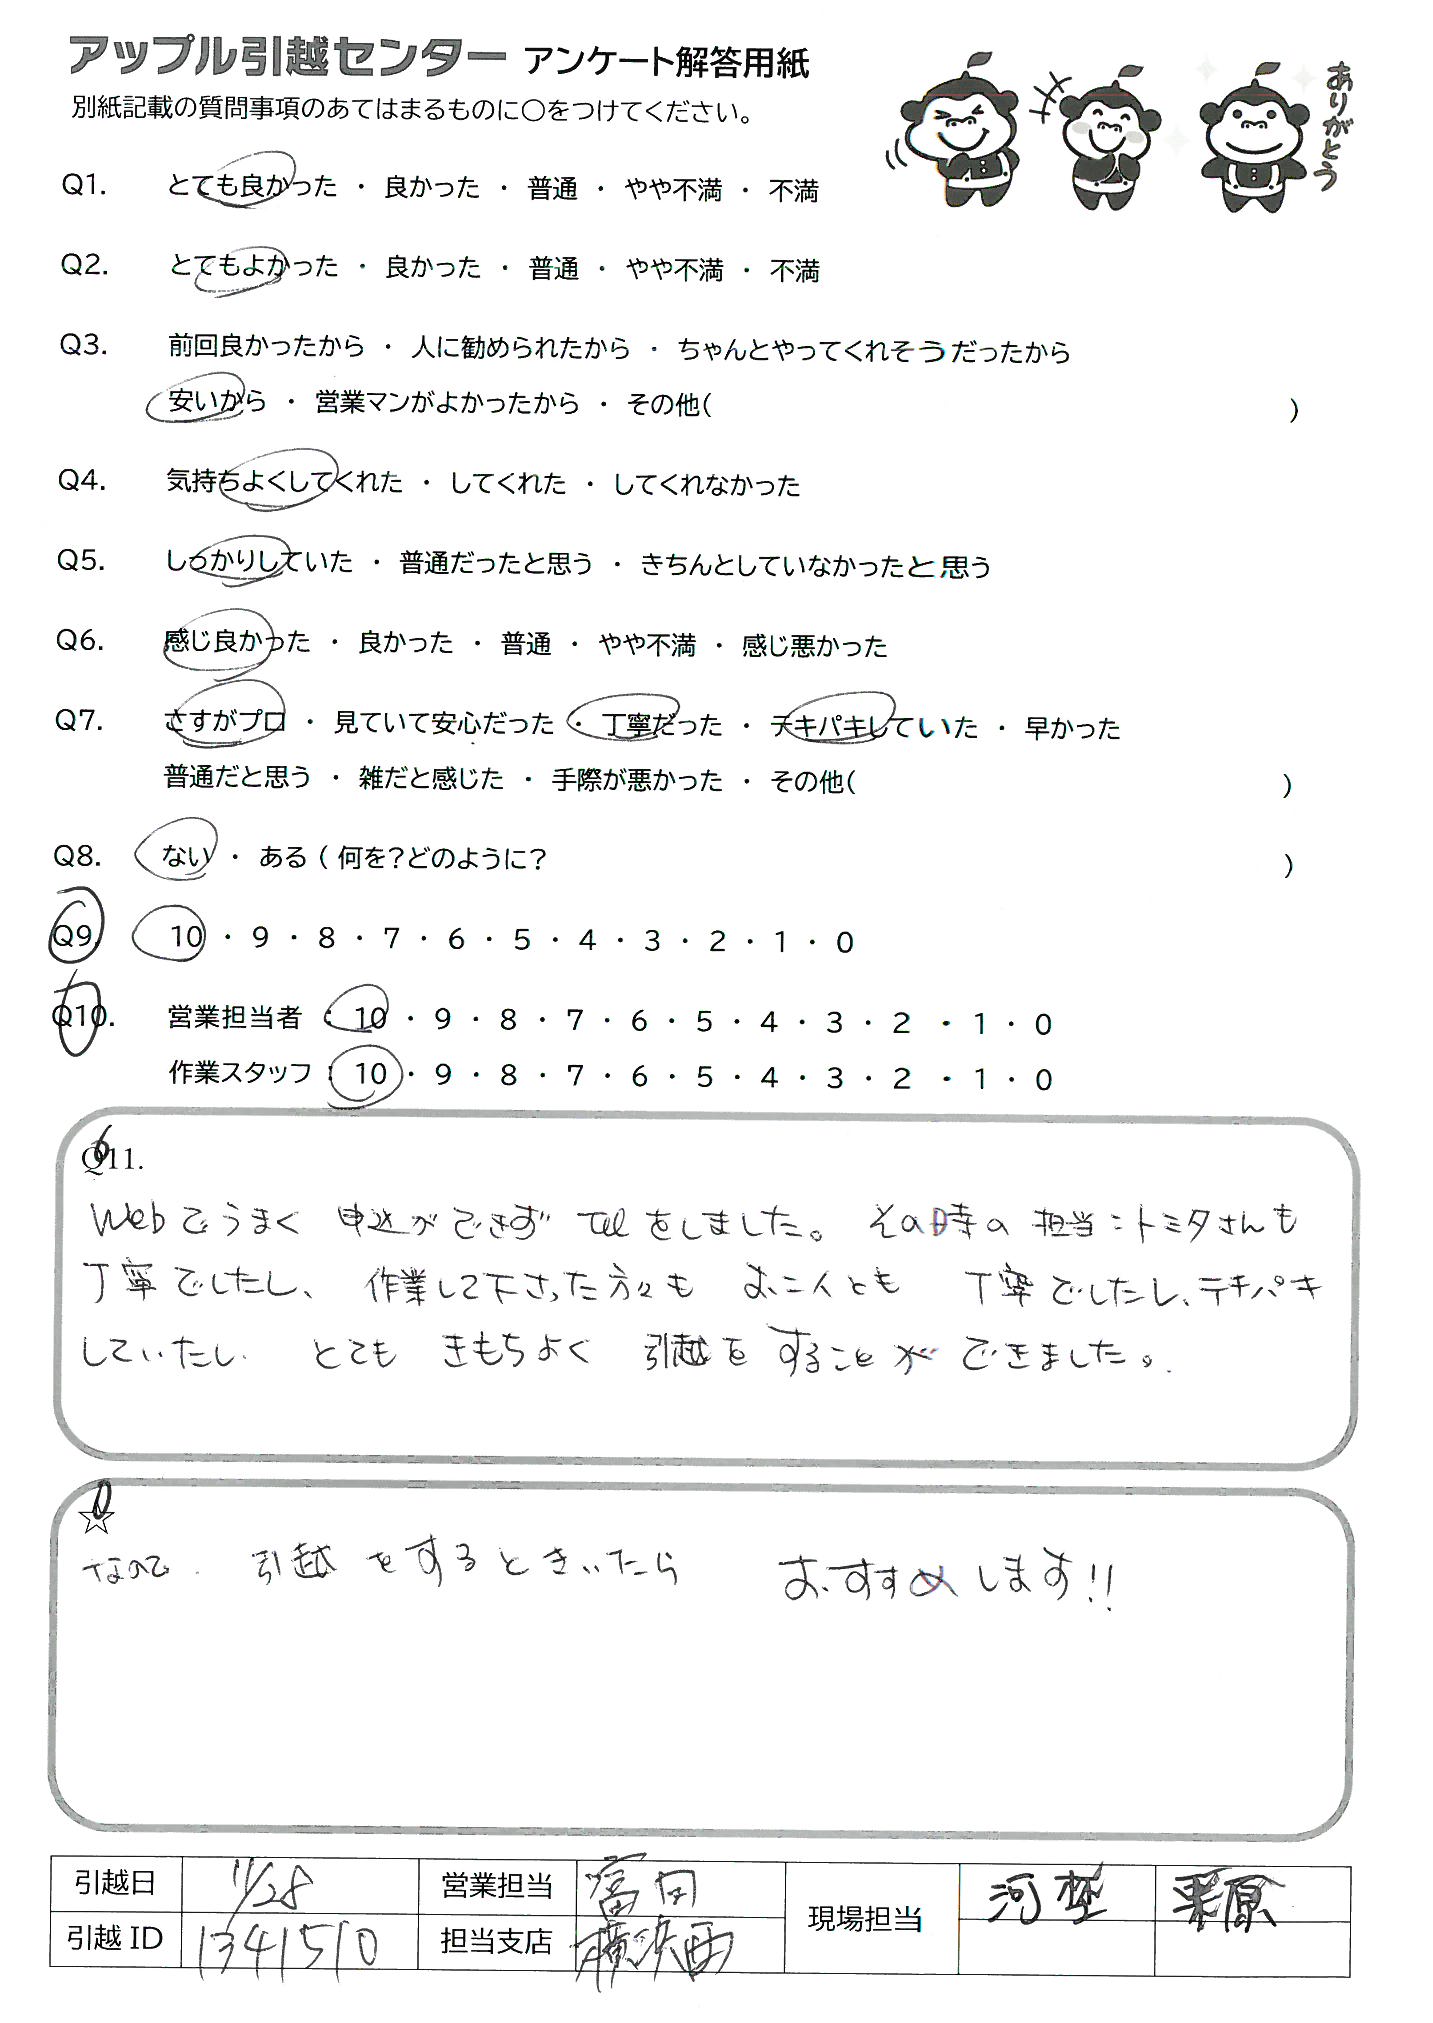 アップル引越センター アンケート解答用紙
別紙記載の質問事項のあてはまるものに〇をつけてください。
ありがとう
Q1. とても良かった ・ 良かった ・ 普通 ・ やや不満 ・ 不満
Q2. とてもよかった ・ 良かった ・ 普通 ・ やや不満 ・ 不満
Q3. 前回良かったから ・ 人に勧められたから ・ ちゃんとやってくれそうだったから
安いから ・ 営業マンがよかったから ・ その他( )
Q4. 気持ちよくしてくれた ・ してくれた ・ してくれなかった
Q5. しっかりしていた ・ 普通だったと思う ・ きちんとしていなかったと思う
Q6. 感じ良かった ・ 良かった ・ 普通 ・ やや不満 ・ 感じ悪かった
Q7. さすがプロ ・ 見ていて安心だった ・ 丁寧だった ・ テキパキしていた ・ 早かった
普通だと思う ・ 雑だと感じた ・ 手際が悪かった ・ その他( )
Q8. ない ・ ある ( 何を?どのように? )
Q9. 10 ・ 9 ・ 8 ・ 7 ・ 6 ・ 5 ・ 4 ・ 3 ・ 2 ・ 1 ・ 0
Q10. 営業担当者 : 10 ・ 9 ・ 8 ・ 7 ・ 6 ・ 5 ・ 4 ・ 3 ・ 2 ・ 1 ・ 0
作業スタッフ : 10 ・ 9 ・ 8 ・ 7 ・ 6 ・ 5 ・ 4 ・ 3 ・ 2 ・ 1 ・ 0
Q11.
Webでうまく 申込ができず telをしました。 その時の 担当:トミタさんも
丁寧でしたし、 作業して下さった方々も お二人とも 丁寧でしたし、テキパキ
していたし、 とても きもちよく 引越を することが できました。
☆
なので、 引越をするときいたら おすすめします!!
引越日 11/28 営業担当 富田 現場担当 河埜
引越 ID 1341510 担当支店 横浜西